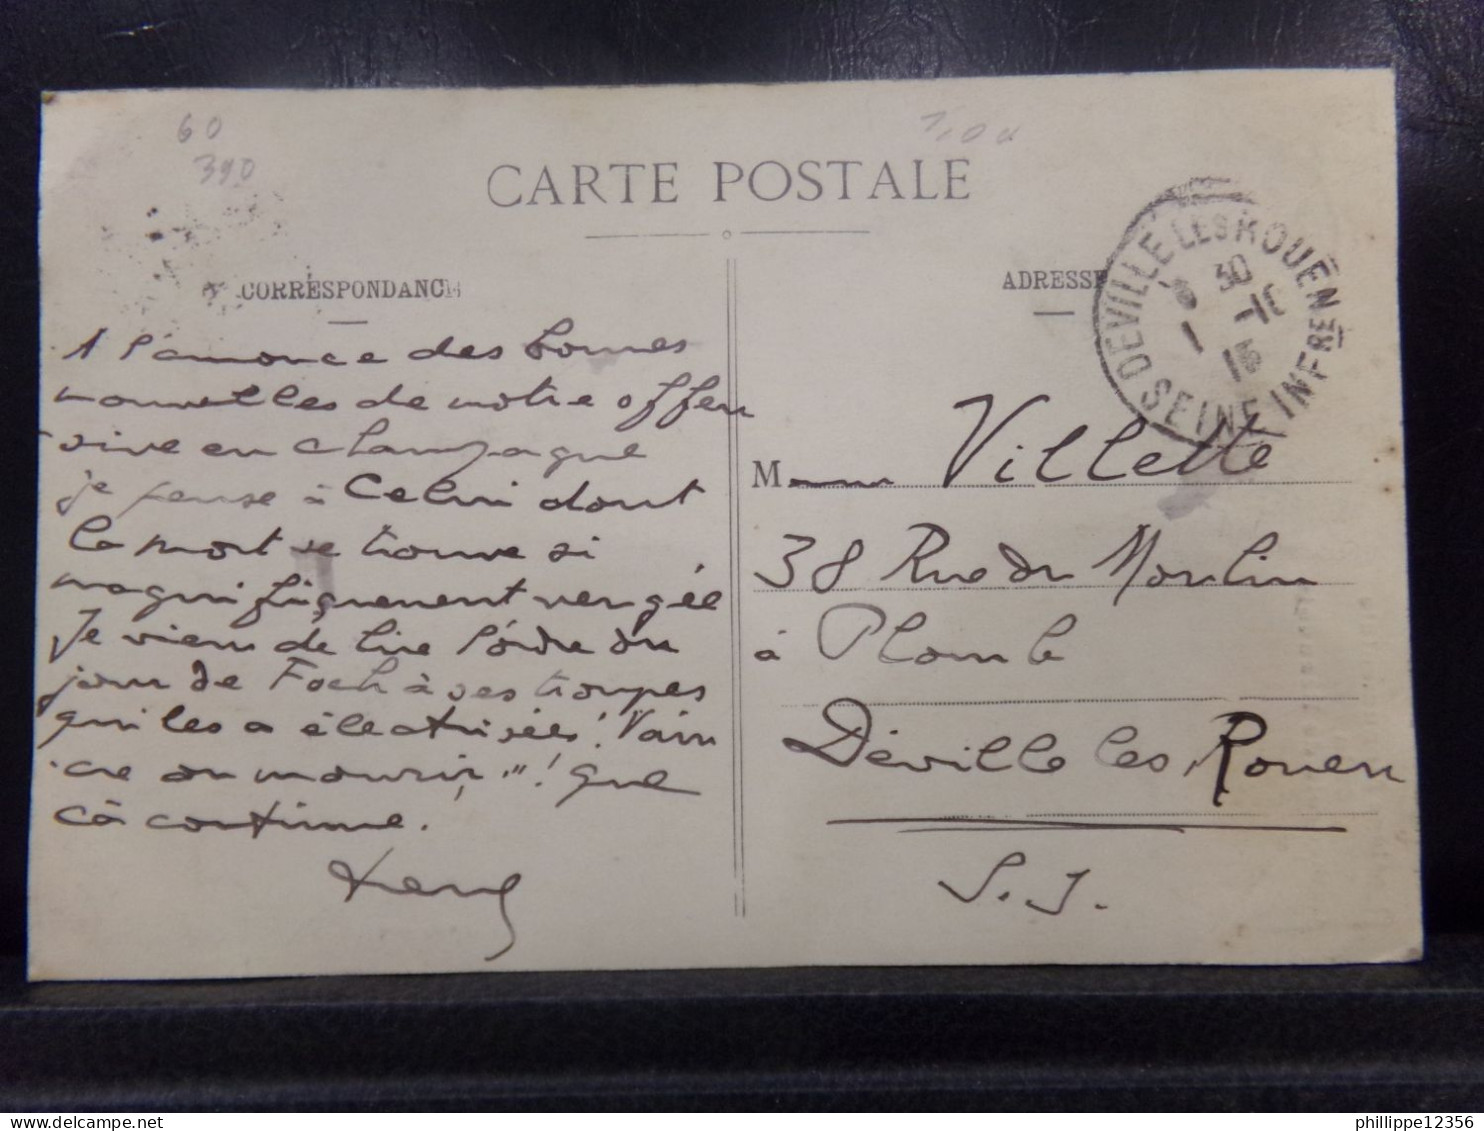 60
390
CARTE POSTALE
CORRESPONDANCE
ADRESSE
DEVILLE LES ROUEN
6 30
1 -10
15
SEINE INFRE
A l'annonce des bonnes
nouvelles de notre offen
sive en Champagne
je pense à Celui dont
la mort se trouve si
magnifiquement vengée
Je viens de lire l'ordre du
jour de Foch à ses troupes
qui les a électrisées! Vain
cre ou mourir,"! que
çà continue.
M Villette
38 Rue du Moulin
à Plomb
Déville les Rouen
S. I.
phillippe12356